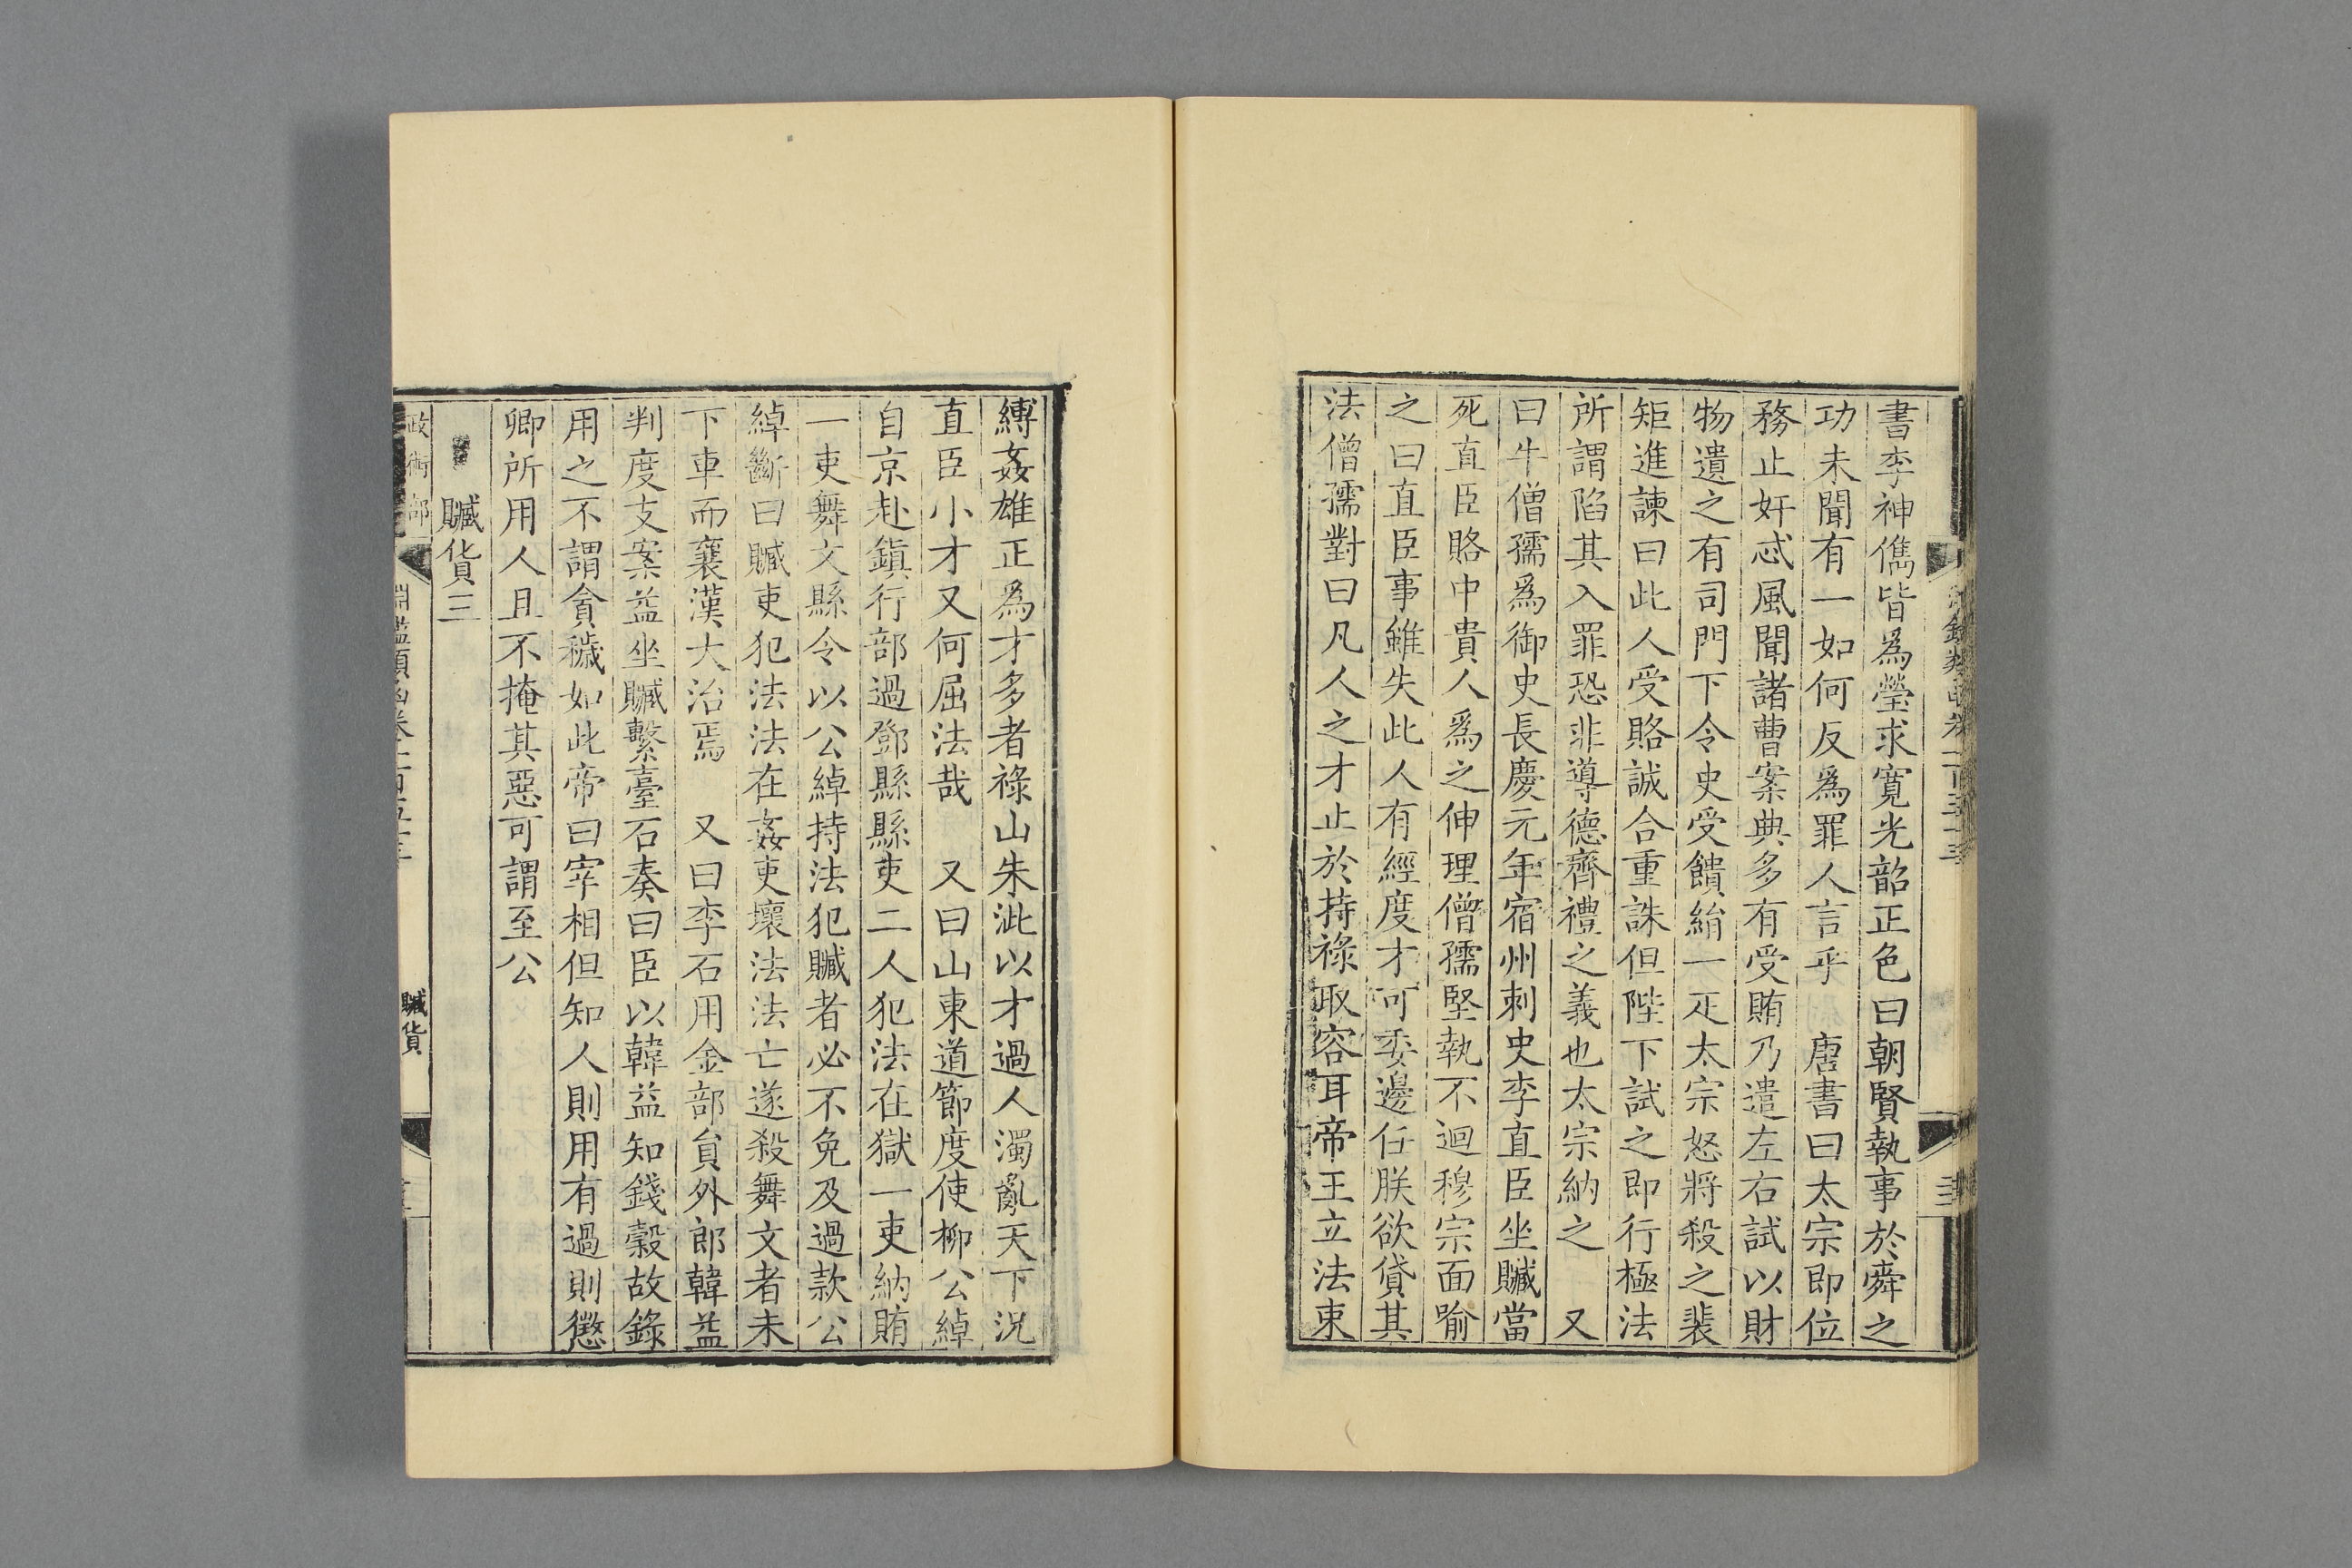 書李神儁皆爲瑩求寛光韶正色曰朝賢執事於舜之
功未聞有一如何反爲罪人言乎　唐書曰太宗即位
務止奸忒風聞諸曹案典多有受賄乃遣左右試以財
物遺之有司門下令史受饋絹一疋太宗怒將殺之裴
矩進諫曰此人受賂誠合重誅但陛下試之即行極法
所謂陷其入罪恐非導德齊禮之義也太宗納之　又
曰牛僧孺爲御史長慶元年宿州刺史李直臣坐贓當
死直臣賂中貴人爲之伸理僧孺堅執不迴穆宗面喻
之曰直臣事雖失此人有經度才可委邊任朕欲貸其
法僧孺對曰凡人之才止於持祿取容耳帝王立法束
縛姦雄正爲才多者祿山朱泚以才過人濁亂天下況
直臣小才又何屈法哉　又曰山東道節度使柳公綽
自京赴鎮行部過鄧縣縣吏二人犯法在獄一吏納賄
一吏舞文縣令以公綽持法犯贓者必不免及過款公
綽斷曰贓吏犯法法在姦吏壞法法亡遂殺舞文者未
下車而襄漢大治焉　又曰李石用金部員外郎韓益
判度支案益坐贓繫臺石奏曰臣以韓益知錢穀故錄
用之不謂貪穢如此帝曰宰相但知人則用有過則懲
卿所用人且不掩其惡可謂至公
贓貨三
政術部
淵鑑類函卷
贓貨